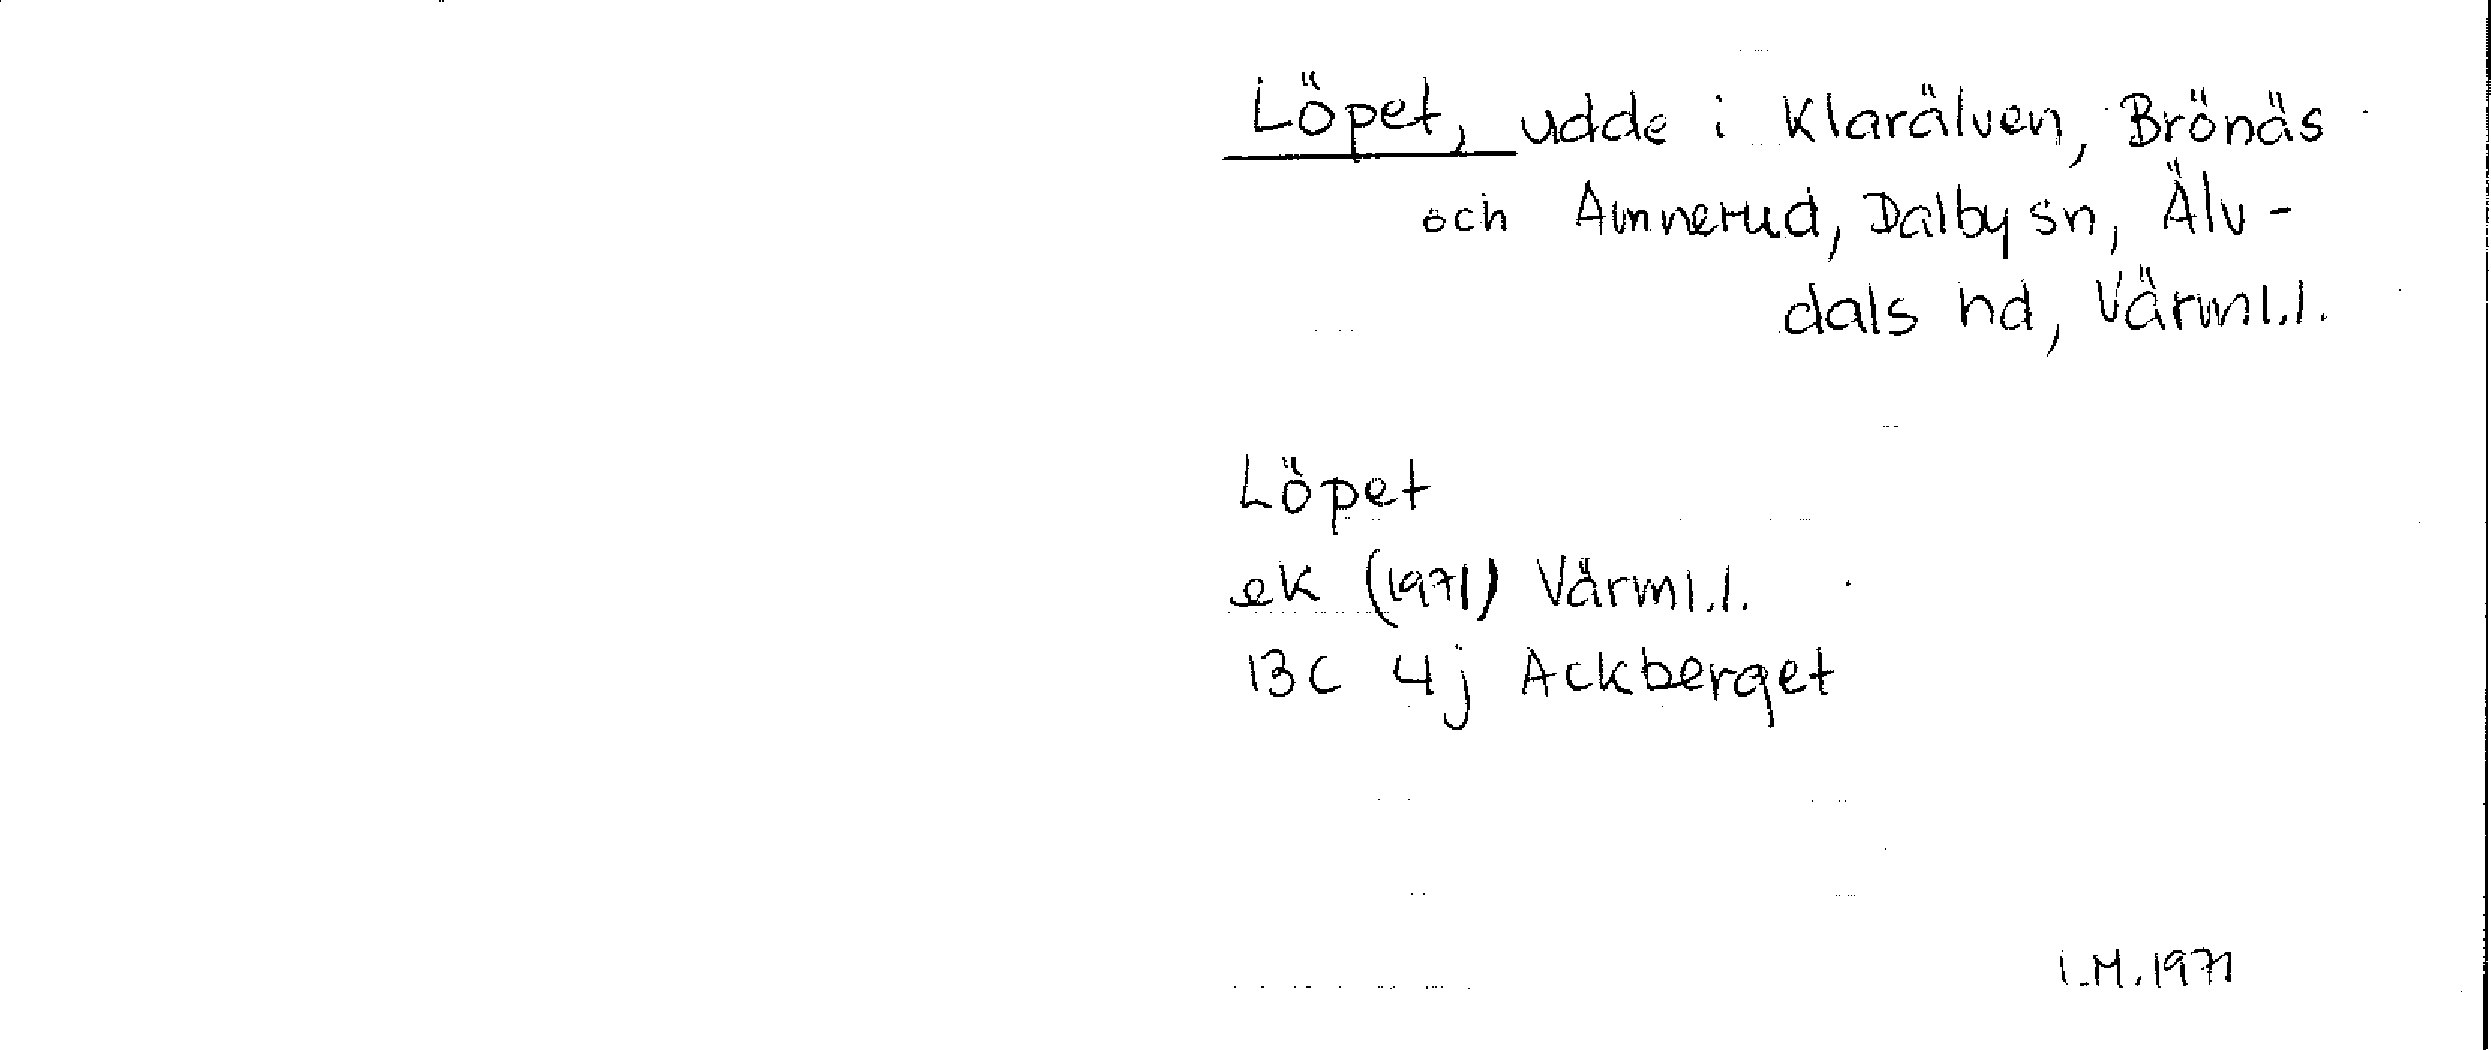 Löpet, udde i Klarälven, Brönäs
och Amnerud, Dalby sn, Älv-
dals hd, Värml.l.
Löpet
ek (1971) Värml.l.
13C 4j Ackberget
I.M.1971